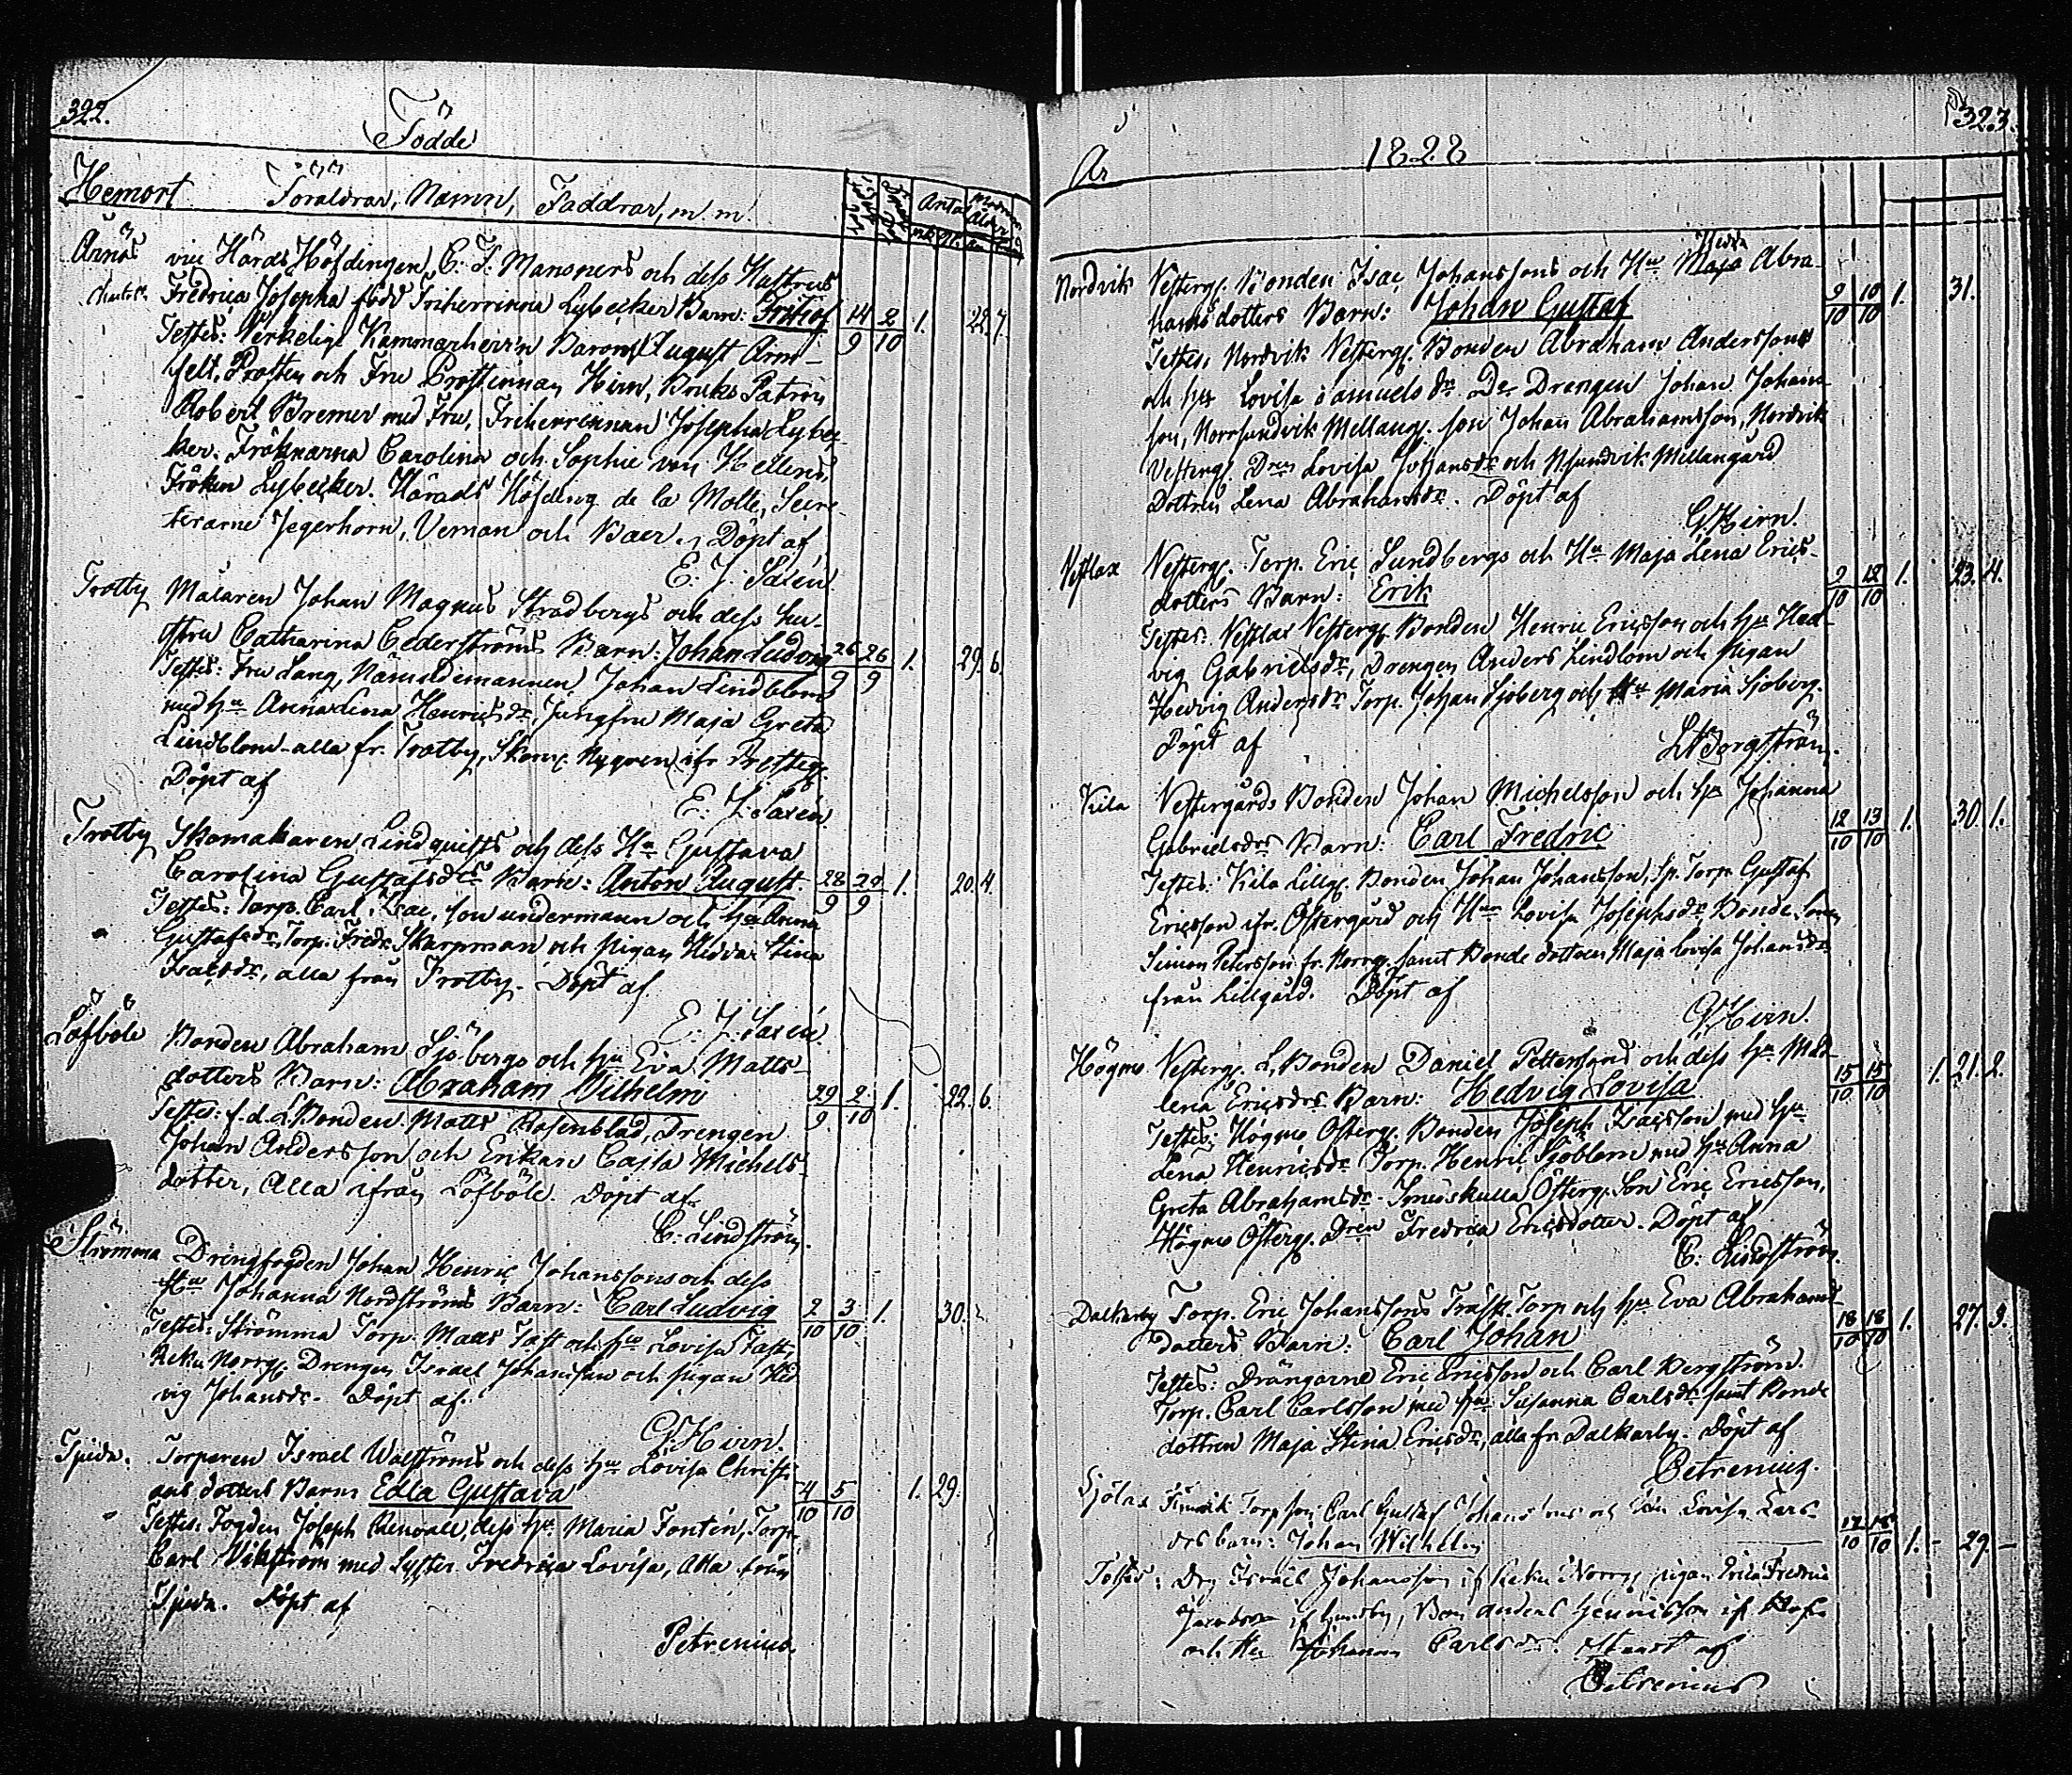 322.
Födde
Hemort Föräldrar, Namn, Faddrar, m. m.
Antal
Årnäs vice Härads Höfdingen C. F. Mansners och dess Hustrus
Fredrica Josepha född Friherrinna Lybecker Barn: Fritiof 14/9 2/10 1. 22. 7.
Testes: Verkelige Kammarherrn Baron August Arm-
felt, Prosten och Fru Prostinnan Hirn, Bruks Patron
Robert Bremer med Fru, Friherrinnan Josepha Lybec-
ker. Fröknarna Carolina och Sophie von Hellens,
Fröken Lybecker. Härads Höfding de la Motte, Secre-
terarne Jegerhorn, Veman och Baer. Döpt af
E. J. Saxén.
Trotby Målaren Johan Magnus Stradbergs och dess hu-
stru Catharina Cederströms Barn: Johan Ludvig 26/9 26/9 1. 29. 6.
Testes: Fru Lang, Nämndemannen Johan Lindblom
med hu Anna Lena Henricsdr, Jungfru Maja Greta
Lindblom alla fr. Trotby, Skom. Nygren ifr Presteg.
Döpt af
E. J. Saxén.
Trotby Skomakaren Lindquists och dess Hu Gustava
Carolina Gustafsdrs Barn: Anton August. 28/9 29/9 1. 20. 4.
Testes: Torp. Carl, Isac, son undermann och hu Anna
Gustafsdr, Torp. Fredr. Skarpman och pigan Hedva Stina
Isacsdr, alla från Trotby. Döpt af
E. J. Saxén.
Löfböle Bonden Abraham Sjöbergs och hu Eva Matts-
dotters Barn: Abraham Vilhelm 29/9 2/10 1. 22. 6.
Testes: f. d. L. Bonden Matts Rosenblad, Drengen
Johan Andersson och Enkan Cajsa Michels-
dotter, Alla ifrån Löfböle. Döpt af
C. Lindström.
Strömma Drengfogden Johan Henric Johanssons och dess
Hu Johanna Nordströms Barn: Carl Ludvig 2/10 3/10 1. 30.
Testes: Strömma Torp. Matts Fast och hu Lovisa Fast,
Reku Norrg. Drengen Israel Johansson och pigan Hed
vig Johansdr. Döpt af
G. Hirn.
Tjuda. Torparen Israel Walströms och dess hu Lovisa Christi
ans dotters Barn Edla Gustava 4/10 5/10 1. 29.
Testes. Fogden Joseph Renvall, dess hu Maria Fontén, Torp.
Carl Vikström med Syster Fredrica Lovisa, Alla från
Tjuda. Döpt af
Petrenius.
År 1828 323.
Nordvik Vesterg. Bonden Isac Johanssons och Hu Hedda Maja Abra-
hamsdotters Barn: Johan Gustaf 9/10 10/10 1. 31.
Testes. Nordvik Vesterg. Bonden Abraham Andersson
och hu Lovisa Samuelsdr Do Drengen Johan Johans-
son, Norrsundvik Mellang. son Johan Abrahamsson, Nordvik
Vesterg. Dren Lovisa Johansdr och Nsundvik Mellangård
Dottren Lena Abrahamsdr. Döpt af
G. Hirn.
Vestlax Vesterg. Torp. Eric Sundbergs och Hu Maja Lena Erics-
dotters Barn: Erik 9/10 12/10 1. 23. 4.
Testes: Vestlax Vesterg. Bonden Henric Ericsson och hu Hed-
vig Gabrielsdr, Drengen Anders Lindlom och pigan
Hedvig Andersdr Torp. Johan Sjöberg och Hu Maria Sjöberg.
Döpt af
L. Borgström.
Kila Vestergårds Bonden Johan Michelsson och hu Johanna
Gabrielsdrs Barn: Carl Fredric 12/10 13/10 1. 30. 1.
Testes: Kila Lillg. Bonden Johan Johansson, Sp. Torp. Gustaf
Ericsson ifr. Östergård och Hu Lovisa Josephsdr. Bonde Sonen
Simon Petersson fr. Norrg. samt Bonde dottren Maja Lovisa Johansdr
från Lillgård. Döpt af
G. Hirn.
Högmo Vesterg. L. Bonden Daniel Petterssons och dess hu Mad-
lena Ericsdrs Barn: Hedvig Lovisa 15/10 15/10 1. 21. 2.
Testes: Högmo Österg. Bonden Joseph Isacsson med hu
Lena Henricsdr Torp. Henric Sjöblom med hu Anna
Greta Abrahamsdr. Smedskulla Österg. Son Eric Ericsson,
Högmo Österg. Dren Fredrica Ericsdotter. Döpt af
C. Lindström.
Dalkarby Torp. Eric Johanssons Träsk Torp och hu Eva Abrahams
dotters Barn: Carl Johan 18/10 18/10 1. 27. 9.
Testes: Drängarne Eric Ericsson och Carl Bergström.
Torp. Carl Carlsson med hu Susanna Carlsdr. samt Bonde
dottren Maja Stina Ericsdr, alla fr Dalkarby. Döpt af
Petrenius.
Sjölax Torpson Carl Gustaf Johanssons och Lovisa Lars-
drs barn: Johan Wilhelm 12/10 15/10 1. - 29. -
Testes: Drg Israel Johansson if Reku Norrg pigan Erica Fredrica
if Bon Anders Henriksson if
och Hu Johanna Carlsdr. af
Petrenius